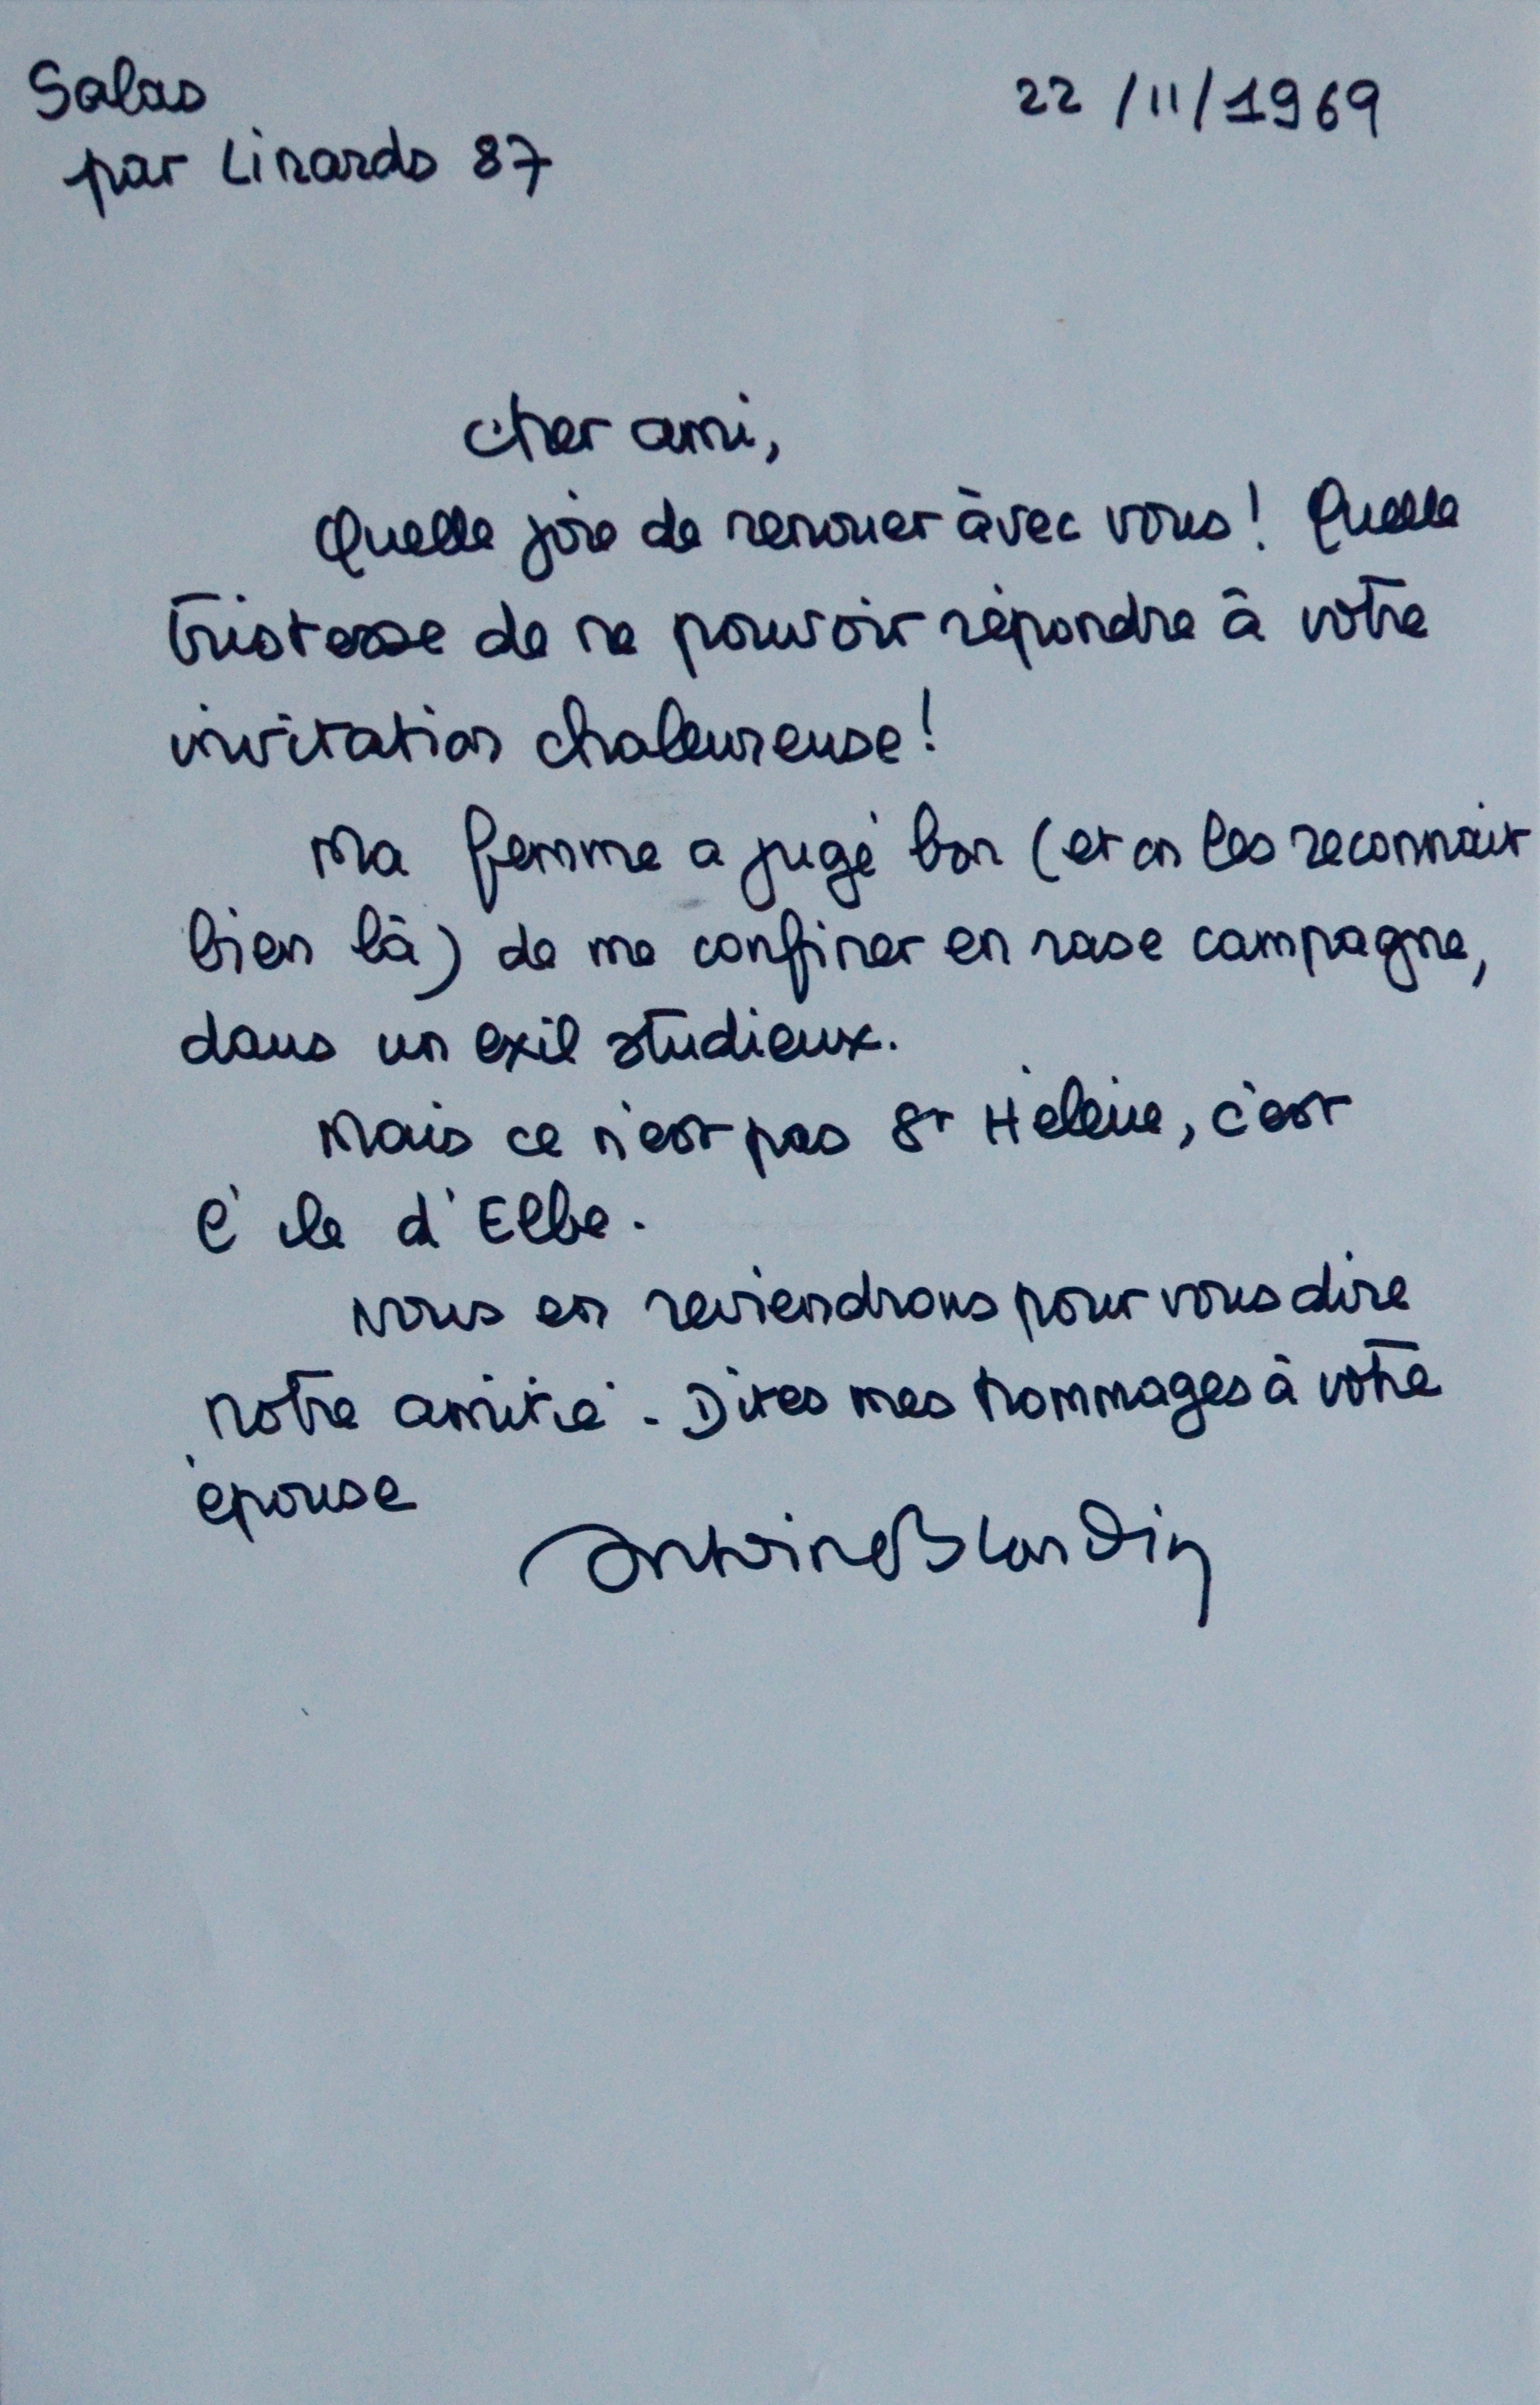 Salas
22/11/1969
par Linards 87
Cher ami,
Quelle joie de renouer avec vous! Quelle
tristesse de ne pouvoir répondre à votre
invitation chaleureuse!
Ma femme a jugé bon (et on les reconnait
bien là) de me confiner en rase campagne,
dans un exil studieux.
Mais ce n'est pas St Hélène, c'est
l'ile d'Elbe.
Nous en reviendrons pour vous dire
notre amitié. Dites mes hommages à votre
épouse
Antoine Blondin